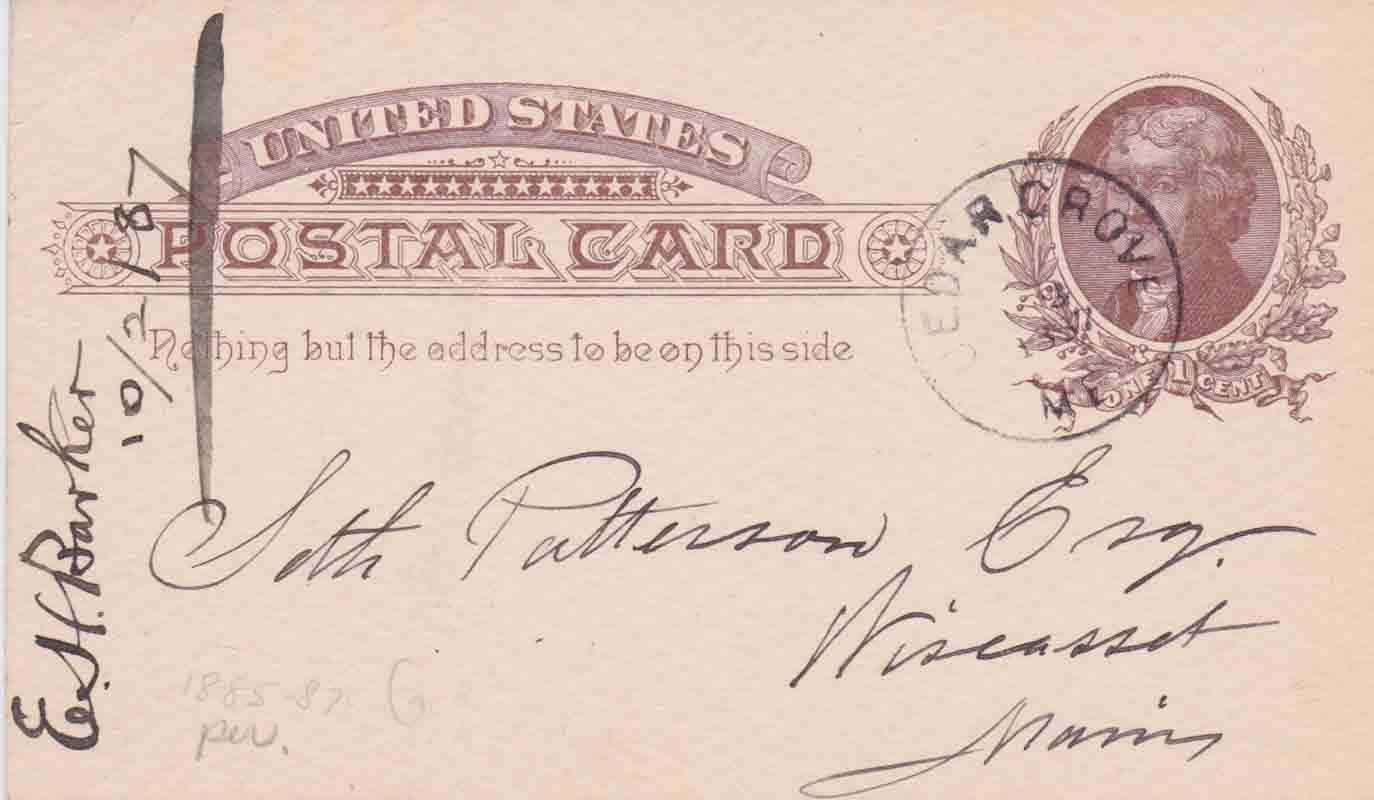 UNITED STATES
POSTAL CARD
Nothing but the address to be on this side
ONE 1 CENT
CEDAR GROVE
ME
Seth Patterson Esq.
Wiscasset
Maine
E. H. Barker
10/2/87
1885-87.